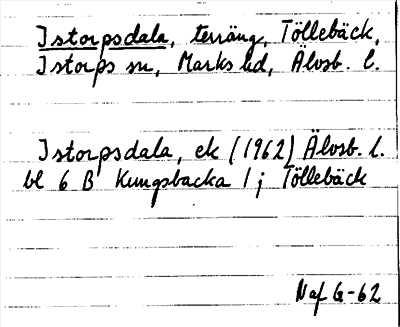 Istorpsdala, terräng, Töllebäck,
Istorps sn, Marks hd, Älvsb. l.
Istorpsdala, ek (1962) Älvsb. l.
bl 6 B Kungsbacka 1 j Töllebäck
Naf G-62